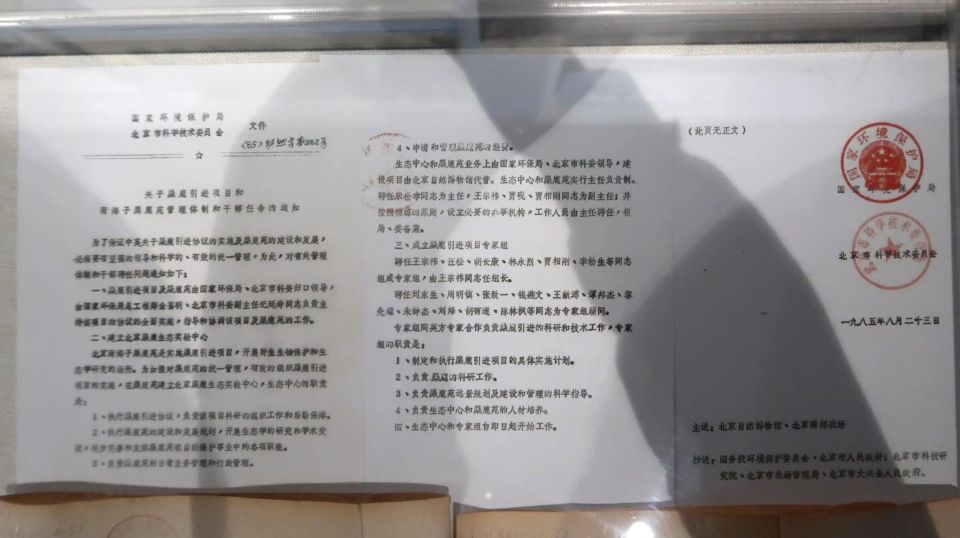 国家环境保护局
北京市科学技术委员会
文件
☆
关于麋鹿引进项目和
南海子麋鹿苑管理体制和干部任命的通知
为了保证中英关于麋鹿引进协议的实施及麋鹿苑的建设和发展,
必须要有坚强的领导和科学的、有效的统一管理,为此,对有关管理
体制和干部聘任问题通知如下:
一、麋鹿引进项目及麋鹿苑由国家环保局、北京市科委归口领导,
由国家环保局总工程师金鉴明、北京市科委副主任
同志负责主
持该项目的协议的全面实施,指导和协调该项目及麋鹿苑的工作。
二、建立北京麋鹿生态实验中心
北京南海子麋鹿苑是实施麋鹿引进项目,开展野生生物保护和生
态学研究的场所。为加强对麋鹿苑的统一管理,有效的组织麋鹿引进
项目的实施,在麋鹿苑建立北京麋鹿生态实验中心,生态中心的职责
是:
1、执行麋鹿引进协议,负责该项目科研的组织工作和后勤保障。
2、执行麋鹿苑的建设和发展规划,开展生态学的研究和学术交
流,逐步完善和发挥麋鹿苑在自然保护事业中的各项职能。
3、负责麋鹿苑的日常业务管理和行政管理。
4、申请和管理麋鹿苑的经费。
生态中心和麋鹿苑业务上由国家环保局、北京市科委领导,建
设项目由北京自然博物馆代管。生态中心和麋鹿苑实行主任负责制。
聘任
同志为主任,王宗祎、贾
、贾相刚同志为副主任;并
按照精练的原则,设立必要的办事机构,工作人员由主任聘任,报
局、委备案。
三、成立麋鹿引进项目专家组
聘任王宗祎、汪松、胡长康、林永烈、贾相刚、李
生等同志
组成专家组,由王宗祎同志任组长。
聘任刘东生、周明镇、张致一、钱燕文、王献溥、谭邦杰、黎
先耀、朱钟杰、刘
、胡
、陈林枫等同志为专家组顾问。
专家组同英方专家合作负责麋鹿引进的科研和技术工作,专家
组的职责是:
1、制定和执行麋鹿引进项目的具体实施计划。
2、负责麋鹿的科研工作。
3、负责麋鹿苑远景规划及建设和管理的科学指导。
4、负责生态中心和麋鹿苑的人材培养。
四、生态中心和专家组自即日起开始工作。
(此页无正文)
国家环境保护局
国家环境保护局
北京市科学技术委员会
北京市科学技术委员会
一九八五年八月二十三日
主送:北京自然博物馆、北京南郊农场
抄送:国务院环境保护委员会、北京市人民政府,北京市科技研
究院、北京市农场管理局、北京市大兴县人民政府。